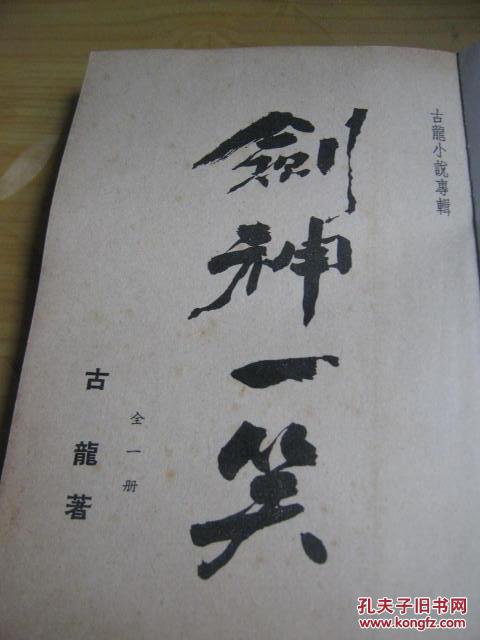 古龍小說專輯
劍神一笑
全一册
古龍著
孔夫子旧书网
www.kongfz.com